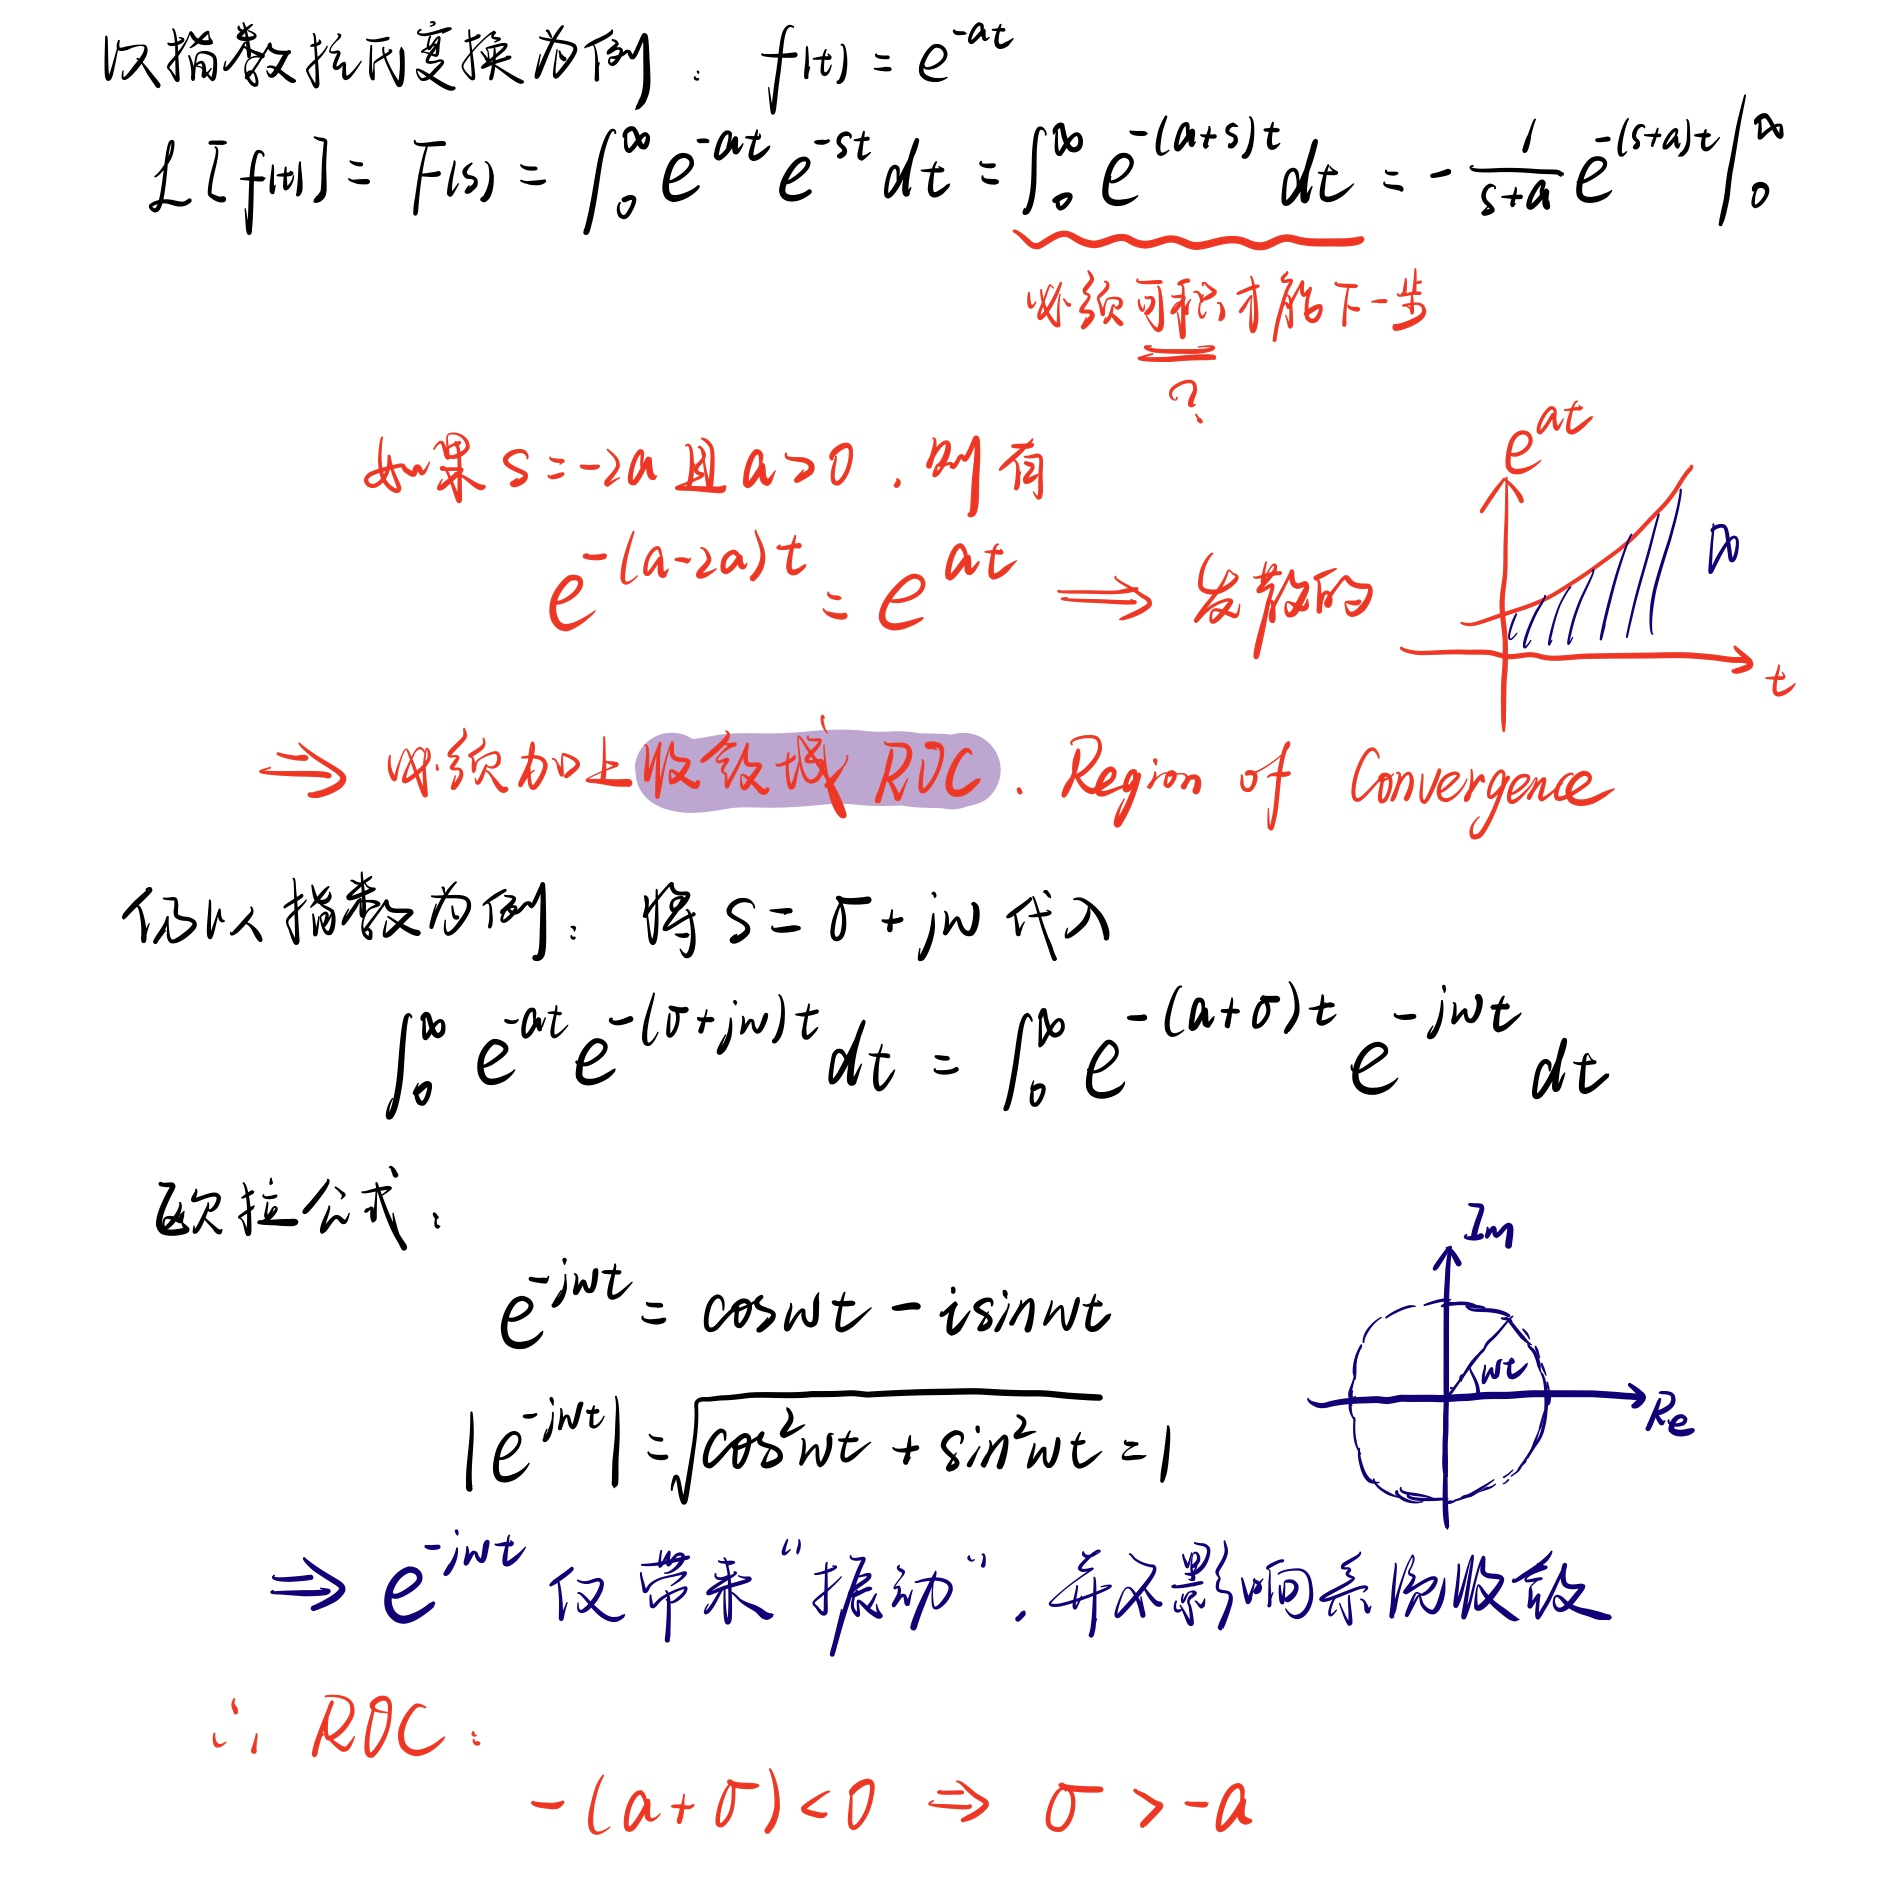 以指数拉氏变换为例： f(t) = e^{-at}
ℒ[f(t)] = F(s) = ∫_0^∞ e^{-at} e^{-st} dt = ∫_0^∞ e^{-(a+s)t} dt = -\frac{1}{s+a} e^{-(s+a)t} |_0^∞
必须可积才能下一步
?
如果 s = -2a 且 a > 0 ，则有
e^{-(a-2a)t} = e^{at} ⇒ 发散的
e^{at}
∞
t
⇒ 必须加上收敛域 ROC . Region of Convergence
仍以指数为例： 将 s = σ + jω 代入
∫_0^∞ e^{-at} e^{-(σ+jω)t} dt = ∫_0^∞ e^{-(a+σ)t} e^{-jωt} dt
欧拉公式：
e^{-jωt} = cosωt - isinωt
|e^{-jωt}| = √(cos²ωt + sin²ωt) = 1
Im
ωt
Re
⇒ e^{-jωt} 仅带来“振动”，并不影响系统收敛
∴ ROC：
-(a+σ) < 0 ⇒ σ > -a